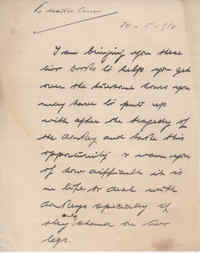 I am bringing you these
two books to help you get
over the tiresome hours you
may have to put up
with after the tragedy of
the donkey and take this
opportunity to warn you
of how difficult it is
in life to deal with
donkeys especially if
they stand on two
legs.